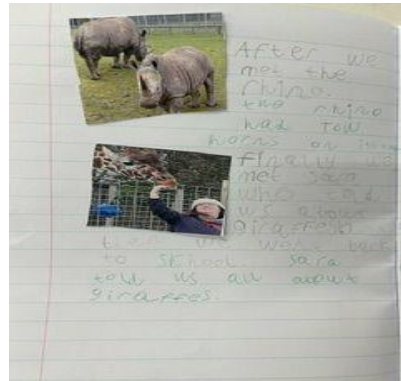 After we
met the
rhino.
the rhino
had tow
horns on
finally we
met sara
who
us about
giraffes
then we went back
to school. sara
told us all about
giraffes.